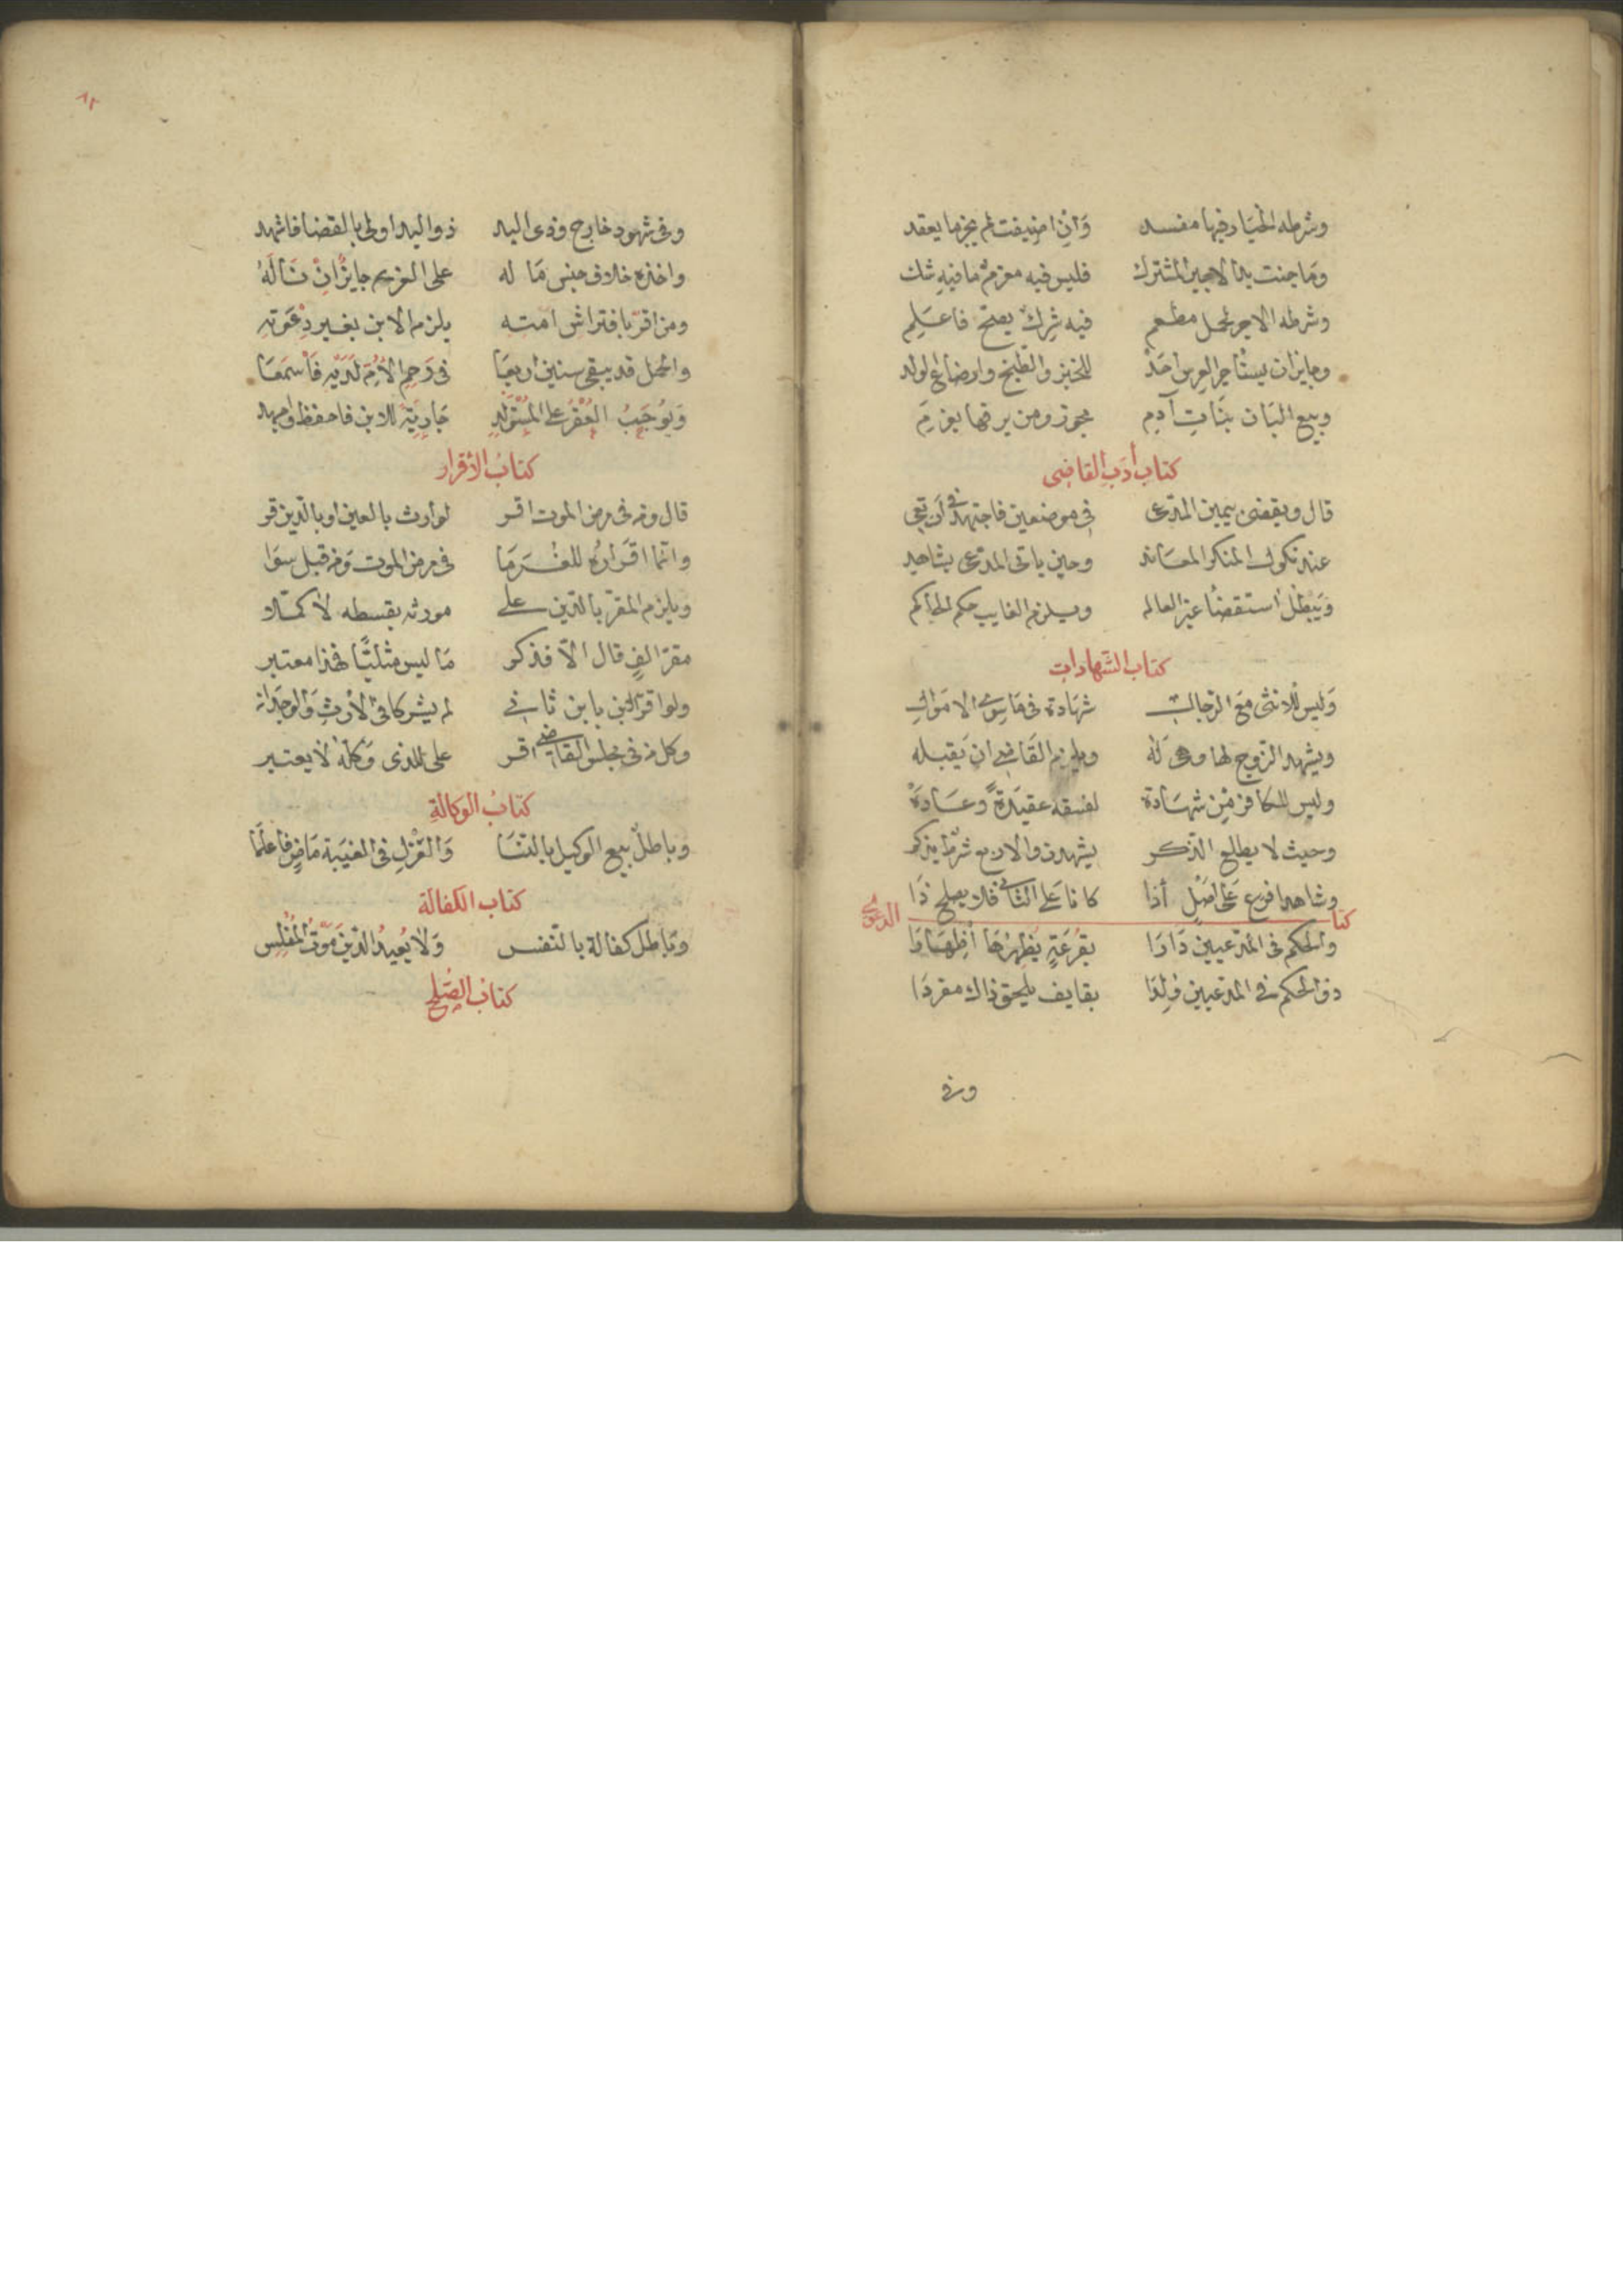 وشرطه الخيار فيها مفسد وان اضيفت لم يجز ما يعقد
وما جنت يد الاجير المشترك فليس فيه مغرم ما فيه شك
وشرطه الاجر لحمل مطعم فيه شرك يصح فاعلم
وجايز ان يستاجر العرس احد للخبز والطبخ وارضاع الولد
وبيع البان بنات آدم يجوز ومن يرقها بغرم
كتاب أدب القاضى
قال ويقضى بيمين المدعى في موضعين فاجتهد في ان تعي
عند نكول المنكر المعاند وحين ياتى المدعى بشاهد
ويبطل استقضا غير العالم ويلزم الغايب حكم الحاكم
كتاب الشهادات
وليس للانثى مع الرجال شهادة في ما سوى الاموال
ويشهد الزوج لها وهي له ويلزم القاضي ان يقبله
وليس للكافر من شهادة لفسقه عقيدة وعادة
وحيث لا يطلع الذكر يشهدن والاربع شرطا يذكر
وشاهدا فرع على اصل اذا كانا على الثاني فلا يصلح ذا
كتاب الدعوى
والحكم في المدعيين دارا بقرعة يظهرها اظهارا
والحكم في المدعيين ولدا بقايف يلحق ذاك مفردا
وفي
٨٢
وفي شهود خارج وذى اليد ذو اليد اولى بالقضا فاشهد
واخذه خلاف جنس ما له على الغريم جايز ان ناله
ومن اقر بافتراش امته يلزم الابن بغير دعوته
والحمل قد يبقى سنين اربعا في رحم الام لديه فاسمعا
ويوجب العقر على المستولد جارية الابن فاحفظ واجهد
كتاب الأقرار
قال ومن في مرض الموت اقر لوارث بالعين او بالدين قر
وانما اقراره للغرما في مرض الموت ومن قبل سوا
ويلزم المقر بالدين على مورثه بقسطه لا كملا
مقر الف قال الا فذكر ما ليس مثليا فهذا معتبر
ولو اقر ابن بابن ثاني لم يشركا في الارث والوجدان
وكل من في مجلس القاضي اقر على الذى وكله لا يعتبر
كتاب الوكالة
وباطل بيع الوكيل بالنسا والعزل في الغيبة ماض فاعلما
كتاب الكفالة
وباطل كفالة بالنفس ولا يعيد الدين موت المفلس
كتاب الصلح